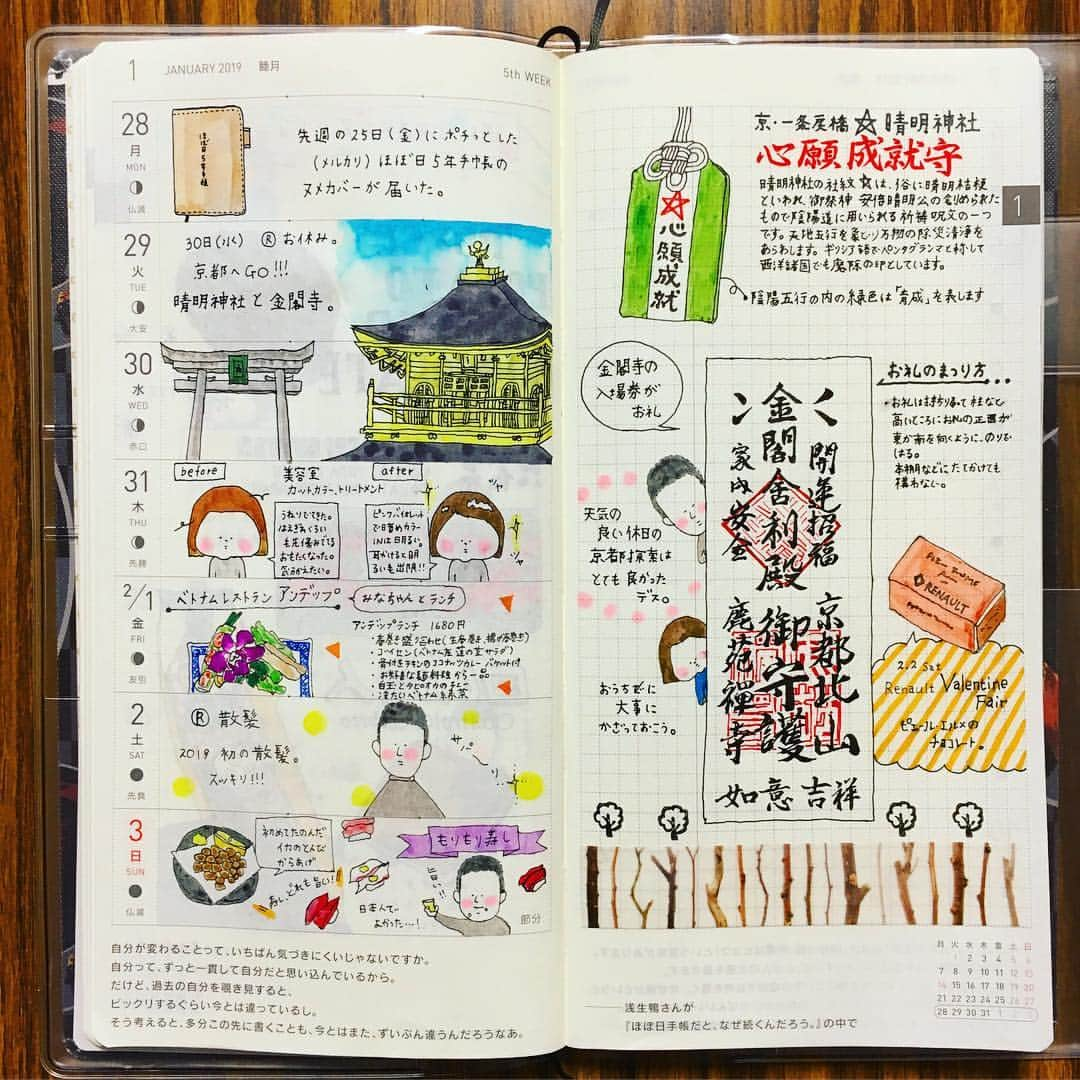 1 JANUARY 2019 睦月
5th WEEK
28
月
MON
仏滅
ほぼ日5年手帳
先週の25日(金)にポチっとした
(メルカリ)ほぼ日5年手帳の
ヌメカバーが届いた。
29
火
TUE
大安
30日(水) Ⓡお休み。
京都へGO!!!
晴明神社と金閣寺。
30
水
WED
赤口
31
木
THU
先勝
before
美容室
カットカラー、トリートメント
after
うねりでてきた。
はえぎわくろい
毛先傷みでる
おもたくなった。
気分かえたい。
ピンクバイオレット
で日暮めカラー
INは明るい。
耳かけると明
るいも出現!!
ツヤ
ツヤ
2/1
金
FRI
友引
ベトナムレストラン アンデップ
みなちゃんとランチ
アンデップランチ 1680円
・春巻き盛り合わせ(生春巻き、揚げ春巻き)
・骨付きチキンのココナッツカレー バゲット付
・お好きな麺料理から一品
・白玉とタピオカのチェー
・冷たいベトナム緑茶
2
土
SAT
先負
Ⓡ散髪
2019 初の散髪。
スッキリ!!!
サパ〜
リ
3
日
SUN
仏滅
初めてたのんだ
イカのとんび
からあげ
あし、どれも旨い!
もりもり寿し
旨い!!
日本人で
よかった…!
節分
自分が変わることって、いちばん気づきにくいじゃないですか。
自分って、ずっと一貫して自分だと思い込んでいるから。
だけど、過去の自分を覗き見すると、
ビックリするぐらい今とは違っているし。
そう考えると、多分この先に書くことも、今とはまた、ずいぶん違うんだろうなあ。
心願成就
京・一条戻橋 ☆ 晴明神社
心願成就守
晴明神社の社紋☆は、俗に晴明桔梗
といわれ、御祭神 安倍晴明公の創められた
もので陰陽道に用いられる祈祷呪文の一つ
です。天地五行を象どり万物の除災清浄を
あらわします。ギリシア語でペンタグランマと称して
西洋諸国でも魔除の印としています。
陰陽五行の内の緑色は「育成」を表します
1
金閣寺の
入場券が
お礼
開運招福
金閣舎利殿
家内安全
京都北山
御守護
鹿苑禅寺
如意吉祥
お礼のまつり方...
高いところにお礼の正面が
東か南を向くように、のりで
はる。
本棚などにたてかけても
構わない。
天気の
良い休日の
京都探索は
とても良かった
デス。
おうちでに
大事に
かざっておこう。
RENAULT
2.2 Sat
Renault Valentine
Fair
ピエール・エルメの
チョコレート。
月 火 水 木 金 土 日
1 2 3 4 5 6
7 8 9 10 11 12 13
14 15 16 17 18 19 20
21 22 23 24 25 26 27
28 29 30 31 1 2 3
――浅生鴨さんが
『ほぼ日手帳だと、なぜ続くんだろう。』の中で